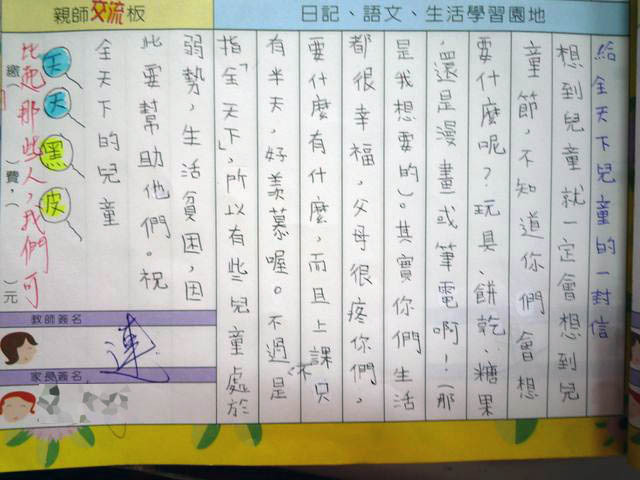 日記、語文、生活學習園地
給全天下兒童的一封信
想到兒童就一定會想到兒
童節,不知道你們會想
要什麼呢?玩具、餅乾、糖果
,還是漫畫或筆電啊!(那
是我想要的)。其實你們生活
都很幸福,父母很疼你們,
要什麼有什麼,而且上課只
有半天,好羨慕喔。不過不是
指「全天下」,所以有些兒童處於
弱勢,生活貧困,因
此要幫助他們。祝
全天下的兒童
天天黑皮
親師交流板
比起那些人,我們可
繳( )費,( )元
教師簽名
連
家長簽名